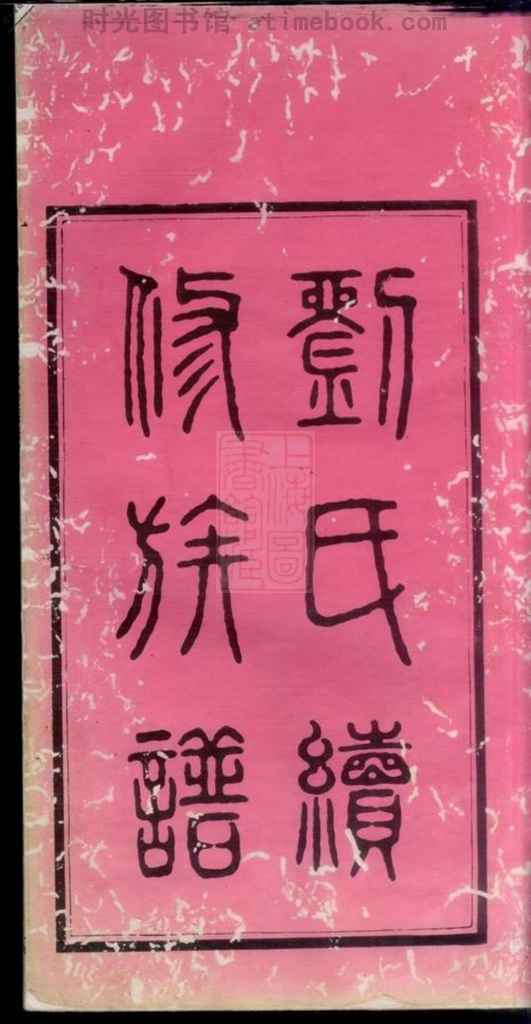 时光图书馆 - atimebook.com
劉氏續
修族譜
上海圖
書館藏